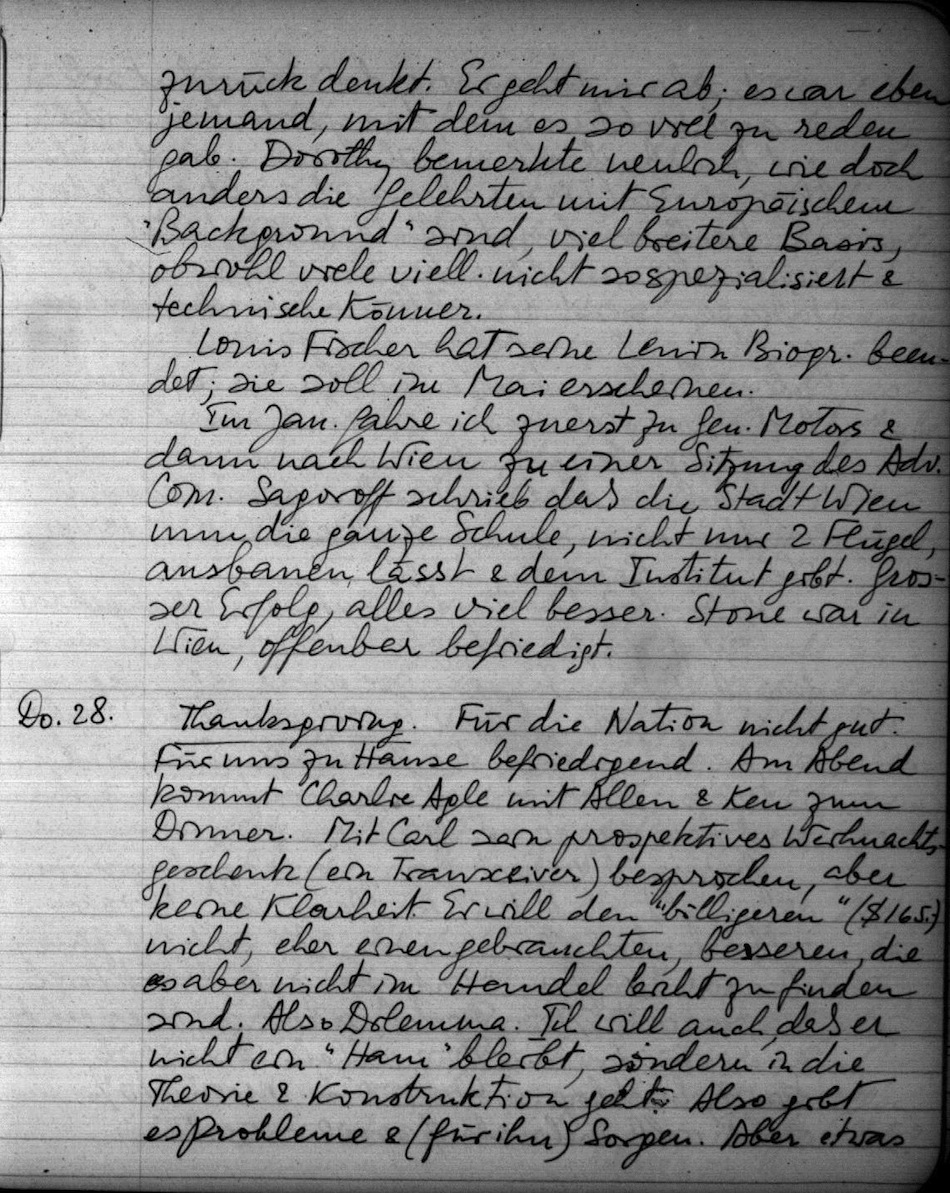 zurück denkt. Er geht mir ab; es war eben
jemand, mit dem es so viel zu reden
gab. Dorothy bemerkte neulich, wie doch
anders die Gelehrten mit Europäischem
"Background" sind, viel breitere Basis,
obwohl viele viell. nicht so spezialisiert &
technische Könner.
Louis Fischer hat seine Lenin Biogr. been-
det; sie soll im Mai erscheinen.
Im Jan. fahre ich zuerst zu Gen. Motors &
dann nach Wien zu einer Sitzung des Adv.
Com. Sagoroff schrieb daß die Stadt Wien
nun die ganze Schule, nicht nur 2 Flügel,
ausbauen lässt & dem Institut gibt. Gros-
ser Erfolg, alles viel besser. Stone war in
Wien, offenbar befriedigt.
Do. 28. Thanksgiving. Für die Nation nicht gut.
Für uns zu Hause befriedigend. Am Abend
kommt Charlie Agle mit Allen & Ken zum
Dinner. Mit Carl sein prospektives Weihnachts-
geschenk (ein Transceiver) besprochen, aber
keine Klarheit. Er will den "billigeren" ($165.)
nicht, eher einen gebrauchten, besseren, die
es aber nicht im Handel leicht zu finden
sind. Also Dilemma. Ich will auch, daß er
nicht ein "Ham" bleibt, sondern in die
Theorie & Konstruktion geht. Also gibt
es Probleme & (für ihn) Sorgen. Aber etwas